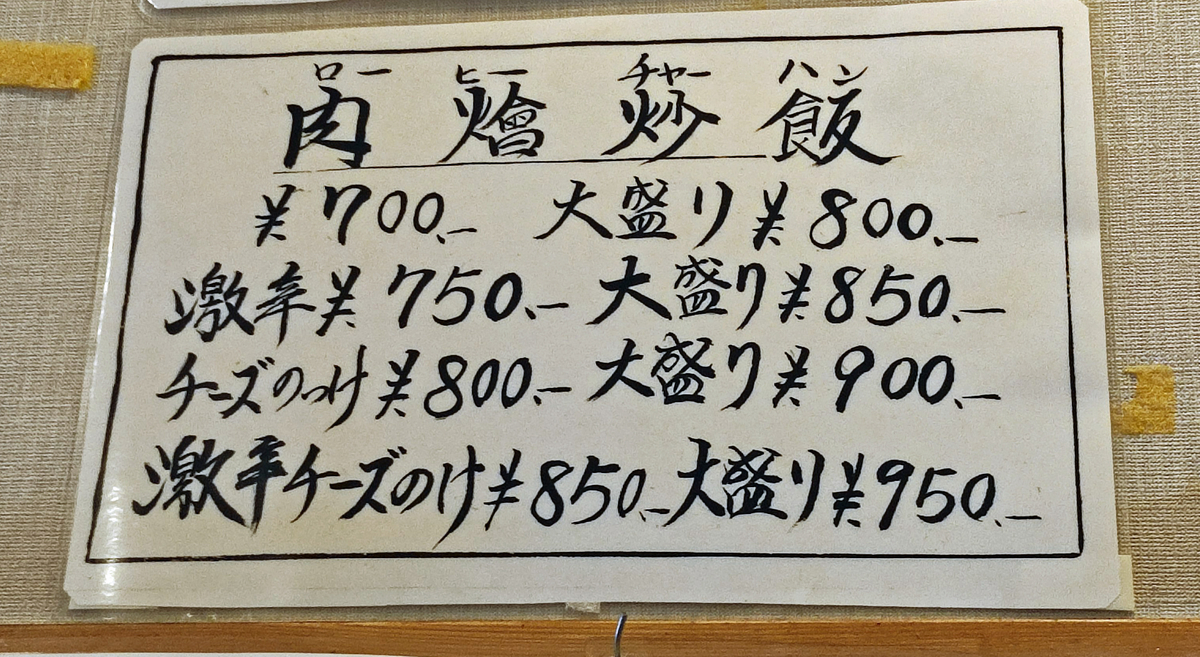 ロー ヒー チャー ハン
肉 燴 炒 飯
¥700.- 大盛り ¥800.-
激辛¥750.- 大盛り¥850.-
チーズのっけ¥800.- 大盛り¥900.-
激辛チーズのけ¥850.- 大盛り¥950.-